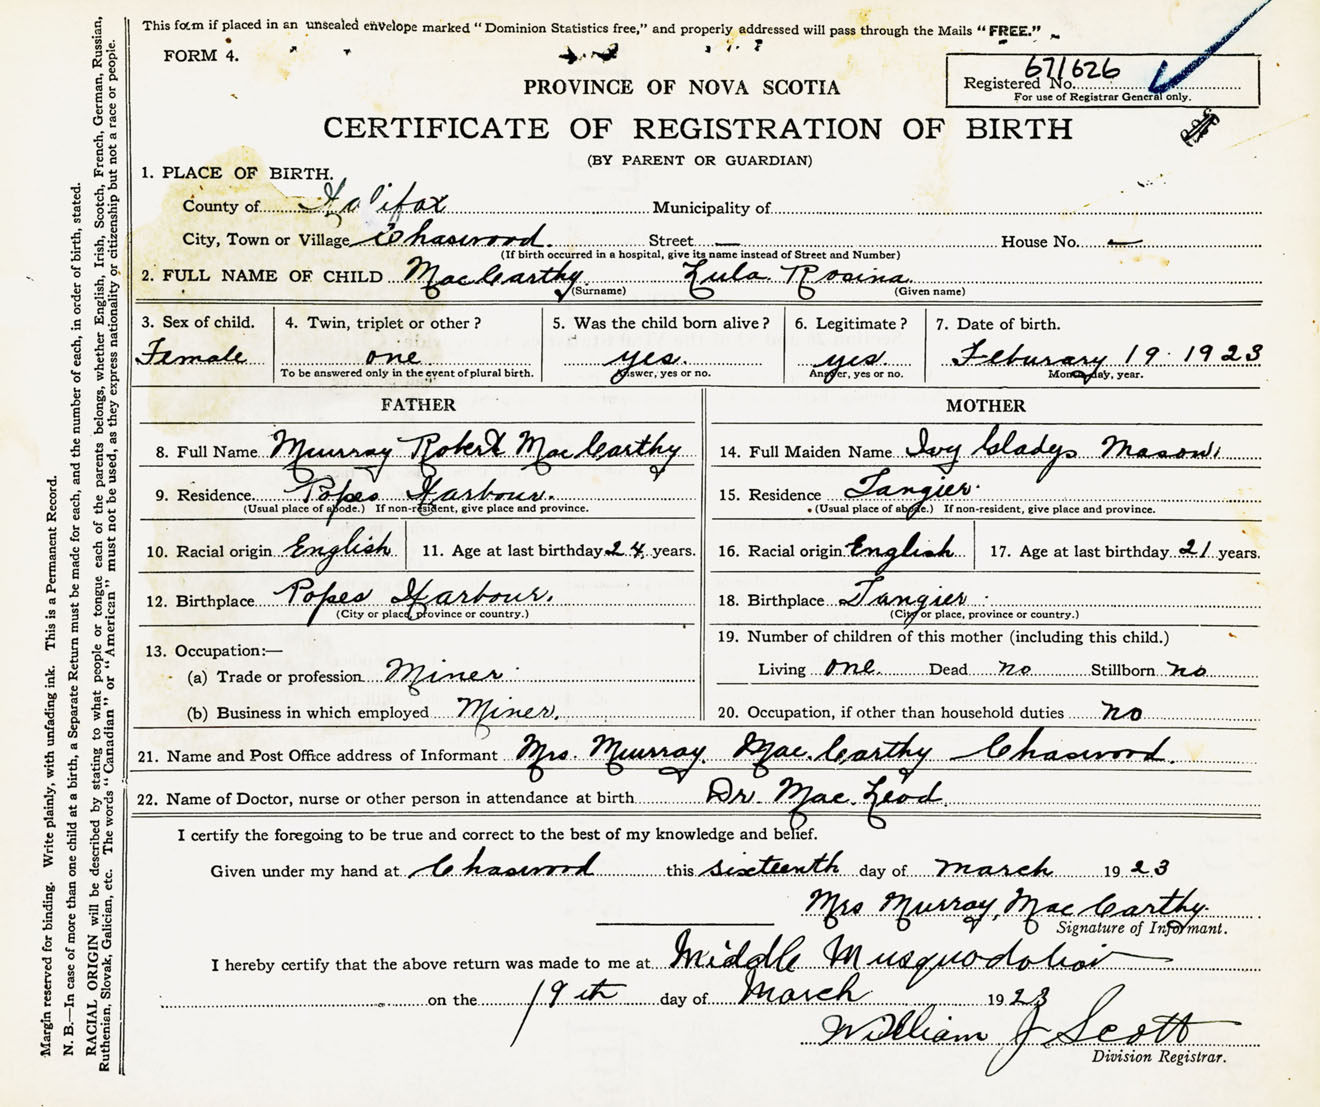 This form if placed in an unsealed envelope marked "Dominion Statistics free," and properly addressed will pass through the Mails "FREE."
FORM 4.
671626
Registered No.
For use of Registrar General only.
PROVINCE OF NOVA SCOTIA
CERTIFICATE OF REGISTRATION OF BIRTH
(BY PARENT OR GUARDIAN)
1. PLACE OF BIRTH.
County of Halifax Municipality of
City, Town or Village Chaswood. Street — House No. —
(If birth occurred in a hospital, give its name instead of Street and Number)
2. FULL NAME OF CHILD MacCarthy Lula Rosina
(Surname) (Given name)
3. Sex of child. 4. Twin, triplet or other? 5. Was the child born alive? 6. Legitimate? 7. Date of birth.
Female one yes. yes. Feburary 19 1923
To be answered only in the event of plural birth. Answer, yes or no. Answer, yes or no. Month, day, year.
FATHER MOTHER
8. Full Name Murray Robert MacCarthy 14. Full Maiden Name Ivy Gladys Mason
9. Residence Popes Harbour. 15. Residence Tangier.
(Usual place of abode.) If non-resident, give place and province. (Usual place of abode.) If non-resident, give place and province.
10. Racial origin English 11. Age at last birthday 24 years. 16. Racial origin English 17. Age at last birthday 21 years.
12. Birthplace Popes Harbour. 18. Birthplace Tangier.
(City or place, province or country.) (City or place, province or country.)
13. Occupation:— 19. Number of children of this mother (including this child.)
(a) Trade or profession Miner Living one. Dead no Stillborn no
(b) Business in which employed Miner. 20. Occupation, if other than household duties no
21. Name and Post Office address of Informant Mrs. Murray. MacCarthy Chaswood.
22. Name of Doctor, nurse or other person in attendance at birth Dr. MacLeod
I certify the foregoing to be true and correct to the best of my knowledge and belief.
Given under my hand at Chaswood this sixteenth day of march 1923
Mrs Murray, MacCarthy
Signature of Informant.
I hereby certify that the above return was made to me at Middle Musquodoboit
on the 19th day of March 1923
William J Scott
Division Registrar.
Margin reserved for binding. Write plainly, with unfading ink. This is a Permanent Record.
N. B.—In case of more than one child at a birth, a Separate Return must be made for each, and the number of each, in order of birth, stated.
RACIAL ORIGIN will be described by stating to what people or tongue each of the parents belongs, whether English, Irish, Scotch, French, German, Russian,
Ruthenian, Slovak, Galician, etc. The words "Canadian" or "American" must not be used, as they express nationality or citizenship but not a race or people.